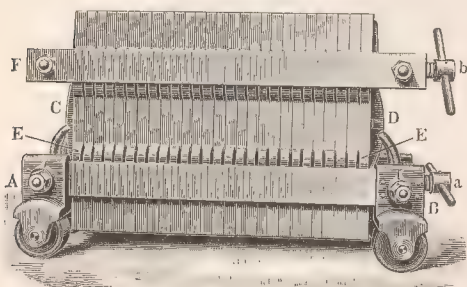 F
b
C
D
E
E
A
a
B